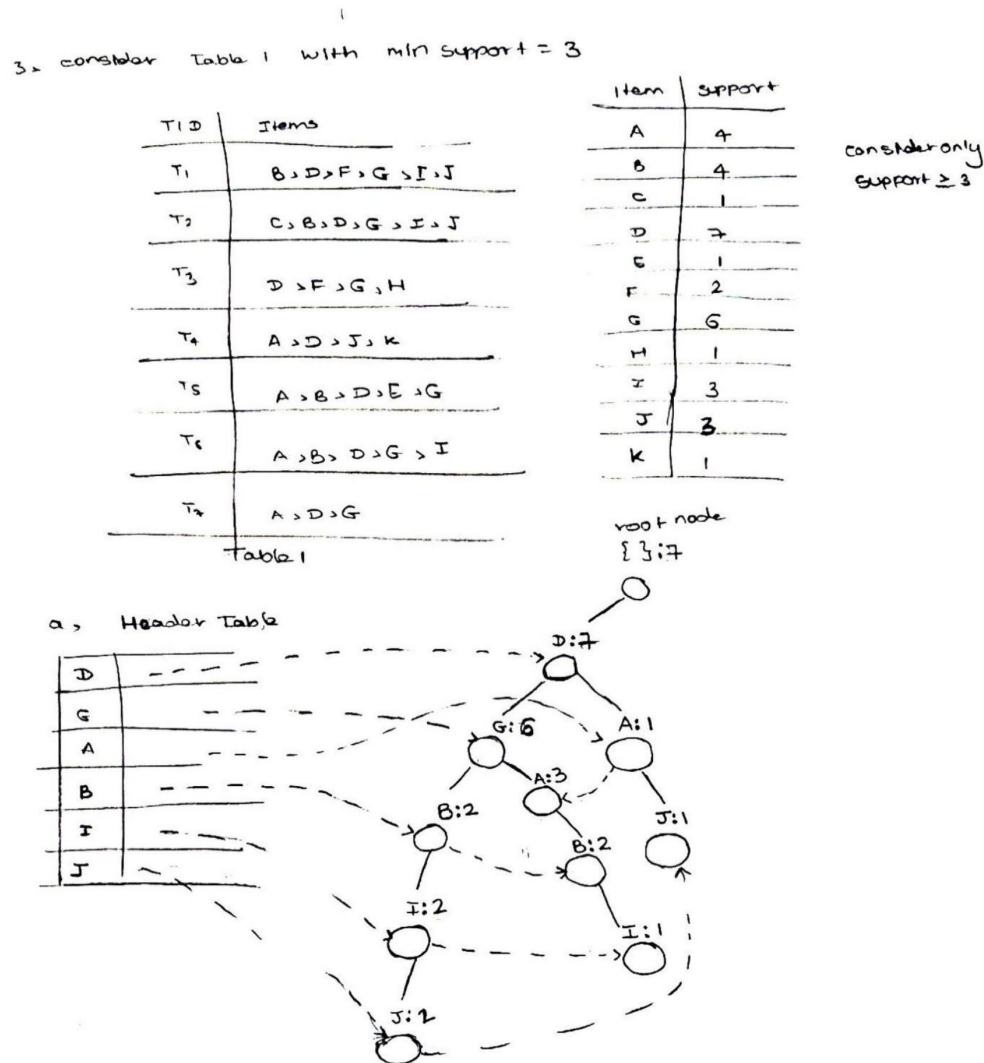 3. consider Table 1 with min support = 3
TID Items
T1 B, D, F, G, I, J
T2 C, B, D, G, I, J
T3 D, F, G, H
T4 A, D, J, K
T5 A, B, D, E, G
T6 A, B, D, G, I
T7 A, D, G
Table 1
Item support
A 4
B 4
C 1
D 7
E 1
F 2
G 6
H 1
I 3
J 3
K 1
consider only
support ≥ 3
a, Header Table
D
G
A
B
I
J
root node
{ }:7
D:7
G:6
A:1
A:3
B:2
J:1
B:2
I:2
I:1
J:2